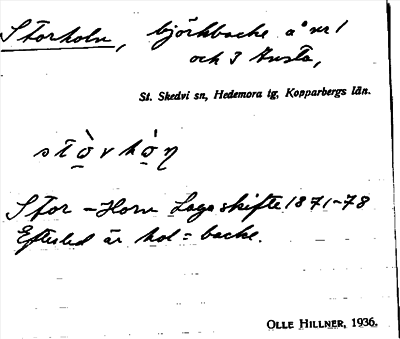 Storholn, björkbacke å nr 1
och 3 Knsta,
St. Skedvi sn, Hedemora tg, Kopparbergs län.
stò̱rhò̱ŋ
Stor-Horn Laga skifte 1871-78
Efterled är hol = backe.
OLLE HILLNER, 1936.